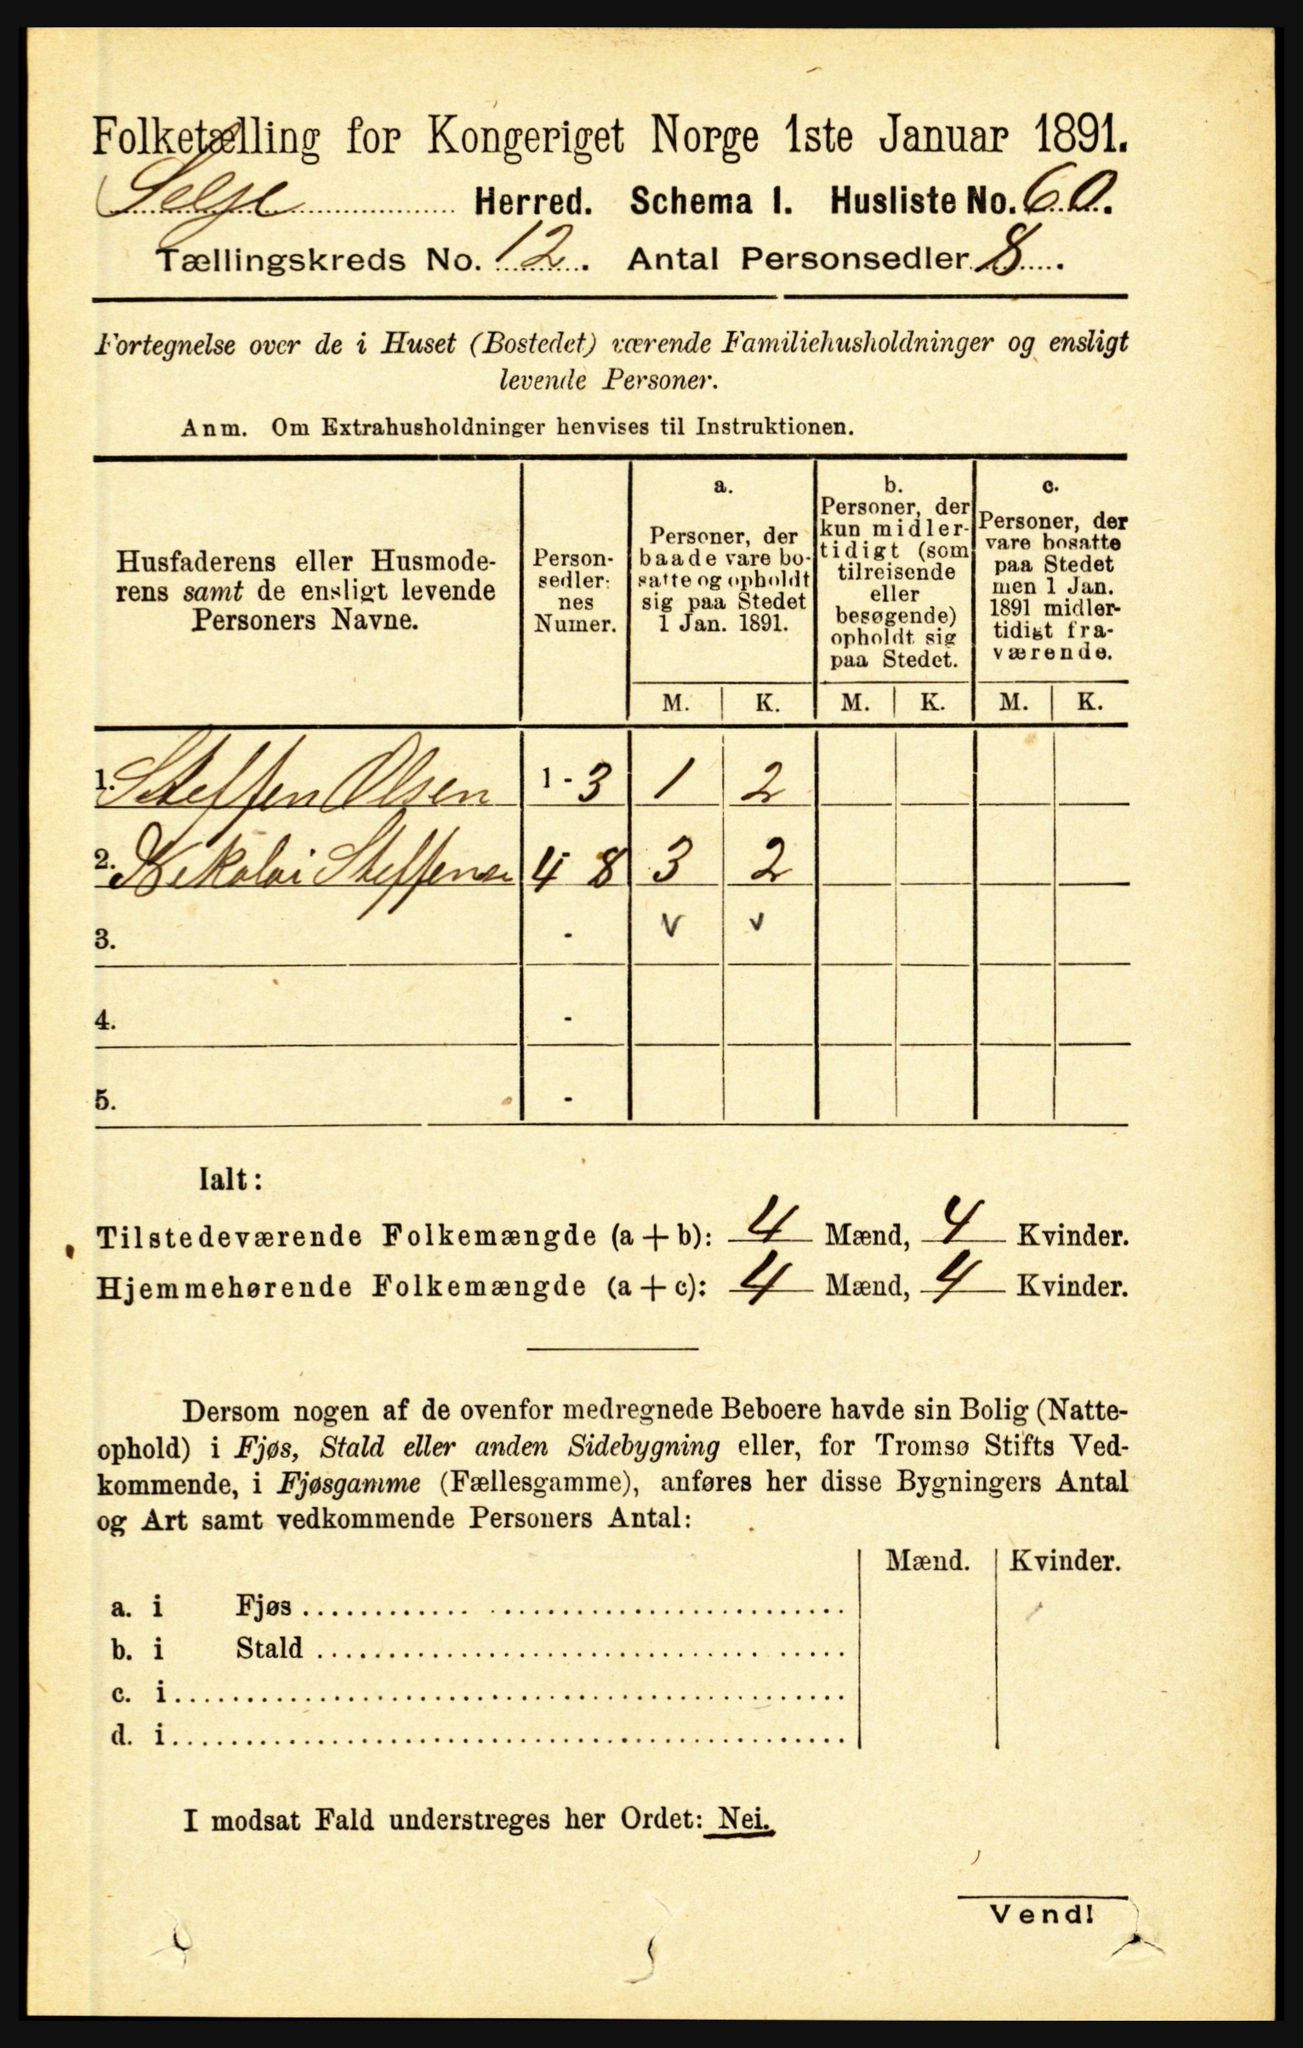 Folketælling for Kongeriget Norge 1ste Januar 1891.
Selje Herred. Schema I. Husliste No. 60.
Tællingskreds No. 12. Antal Personsedler 8.
Fortegnelse over de i Huset (Bostedet) værende Familiehusholdninger og ensligt
levende Personer.
Anm. Om Extrahusholdninger henvises til Instruktionen.
Husfaderens eller Husmode-
rens samt de ensligt levende
Personers Navne.
Person-
sedler-
nes
Numer.
a.
Personer, der
baade vare bo-
satte og opholdt
sig paa Stedet
1 Jan. 1891.
b.
Personer, der
kun midler-
tidigt (som
tilreisende
eller
besøgende)
opholdt sig
paa Stedet.
c.
Personer, der
vare bosatte
paa Stedet
men 1 Jan.
1891 midler-
tidigt fra-
værende.
M. K. M. K. M. K.
1. Steffen Olsen 1 - 3 1 2
2. Nikolai Steffensen 4 - 8 3 2
3. - v v
4. -
5. -
Ialt:
Tilstedeværende Folkemængde (a + b): 4 Mænd, 4 Kvinder.
Hjemmehørende Folkemængde (a + c): 4 Mænd, 4 Kvinder.
Dersom nogen af de ovenfor medregnede Beboere havde sin Bolig (Natte-
ophold) i Fjøs, Stald eller anden Sidebygning eller, for Tromsø Stifts Ved-
kommende, i Fjøsgamme (Fællesgamme), anføres her disse Bygningers Antal
og Art samt vedkommende Personers Antal:
Mænd. Kvinder.
a. i Fjøs
b. i Stald
c. i
d. i
I modsat Fald understreges her Ordet: Nei.
Vend!